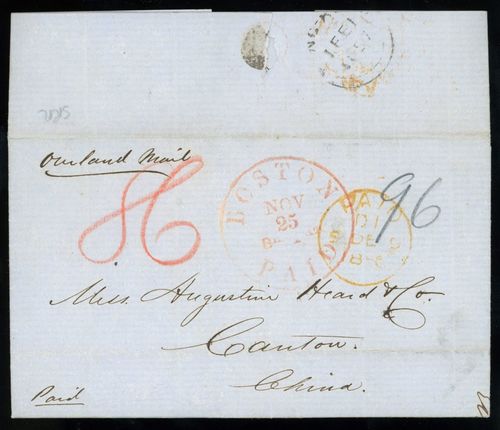 Overland Mail
86
96
BOSTON
NOV
25
PAID
PAID
DE 9
Mess. Augustine Heard & Co.
Canton.
China.
Paid